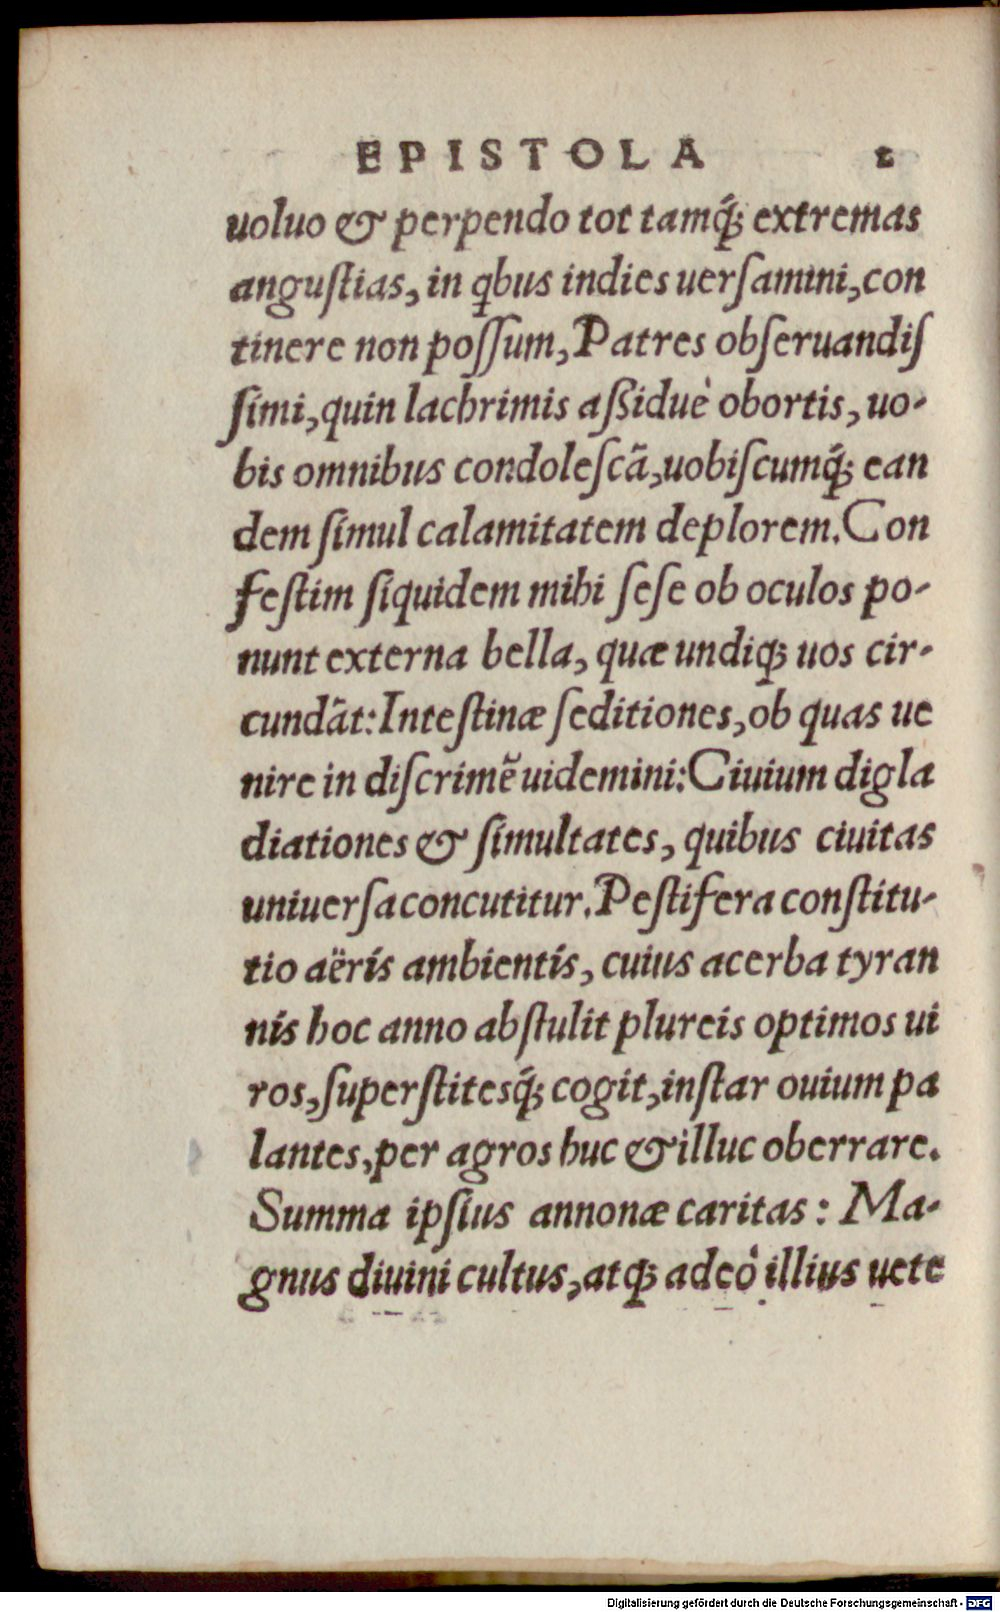 EPISTOLA 2
uoluo & perpendo tot tamq́; extremas
anguſtias, in qbus indies uerſamini, con
tinere non poſſum, Patres obſeruandiſ
ſimi, quin lachrimis aßiduè obortis, uo-
bis omnibus condoleſcã, uobiſcumq́; ean
dem ſimul calamitatem deplorem. Con
feſtim ſiquidem mihi ſeſe ob oculos po-
nunt externa bella, quæ undiq; uos cir-
cundãt: Inteſtinæ ſeditiones, ob quas ue
nire in diſcrimẽ uidemini: Ciuium digla
diationes & ſimultates, quibus ciuitas
uniuerſa concutitur. Peſtifera conſtitu-
tio aëris ambientis, cuius acerba tyran
nis hoc anno abſtulit plureis optimos ui
ros, ſuperſtitesq́; cogit, inſtar ouium pa
lantes, per agros huc & illuc oberrare.
Summa ipſius annonæ caritas: Ma-
gnus diuini cultus, atq; adeò illius uete
Digitalisierung gefördert durch die Deutsche Forschungsgemeinschaft - DFG